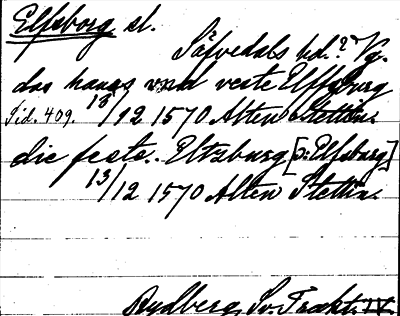 Elfsborg sl.
Säfvedals hd.? Vg.
das hauss vnd veste Elffzburg
Sid. 409. 13/12 1570 Alten Stettin.
die feste.. Eltzburg [ɔ: Elfsburg]
13/12 1570 Alten Stettin.
Rydberg, Sv. Trakt. IV.